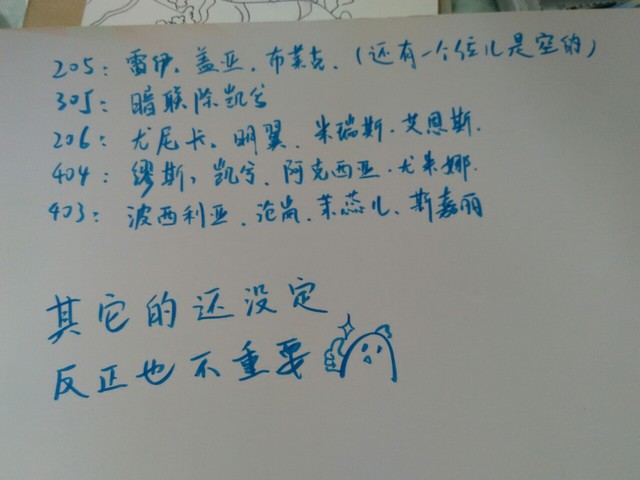 205：雷伊、盖亚、布莱克、（还有一个位儿是空的）
305：暗联除凯兮
206：尤尼卡、明翼、米瑞斯、艾恩斯.
404：缪斯、凯兮、阿克西亚、尤米娜.
403：波西利亚、沧岚、茉蕊儿、斯嘉丽
其它的还没定
反正也不重要